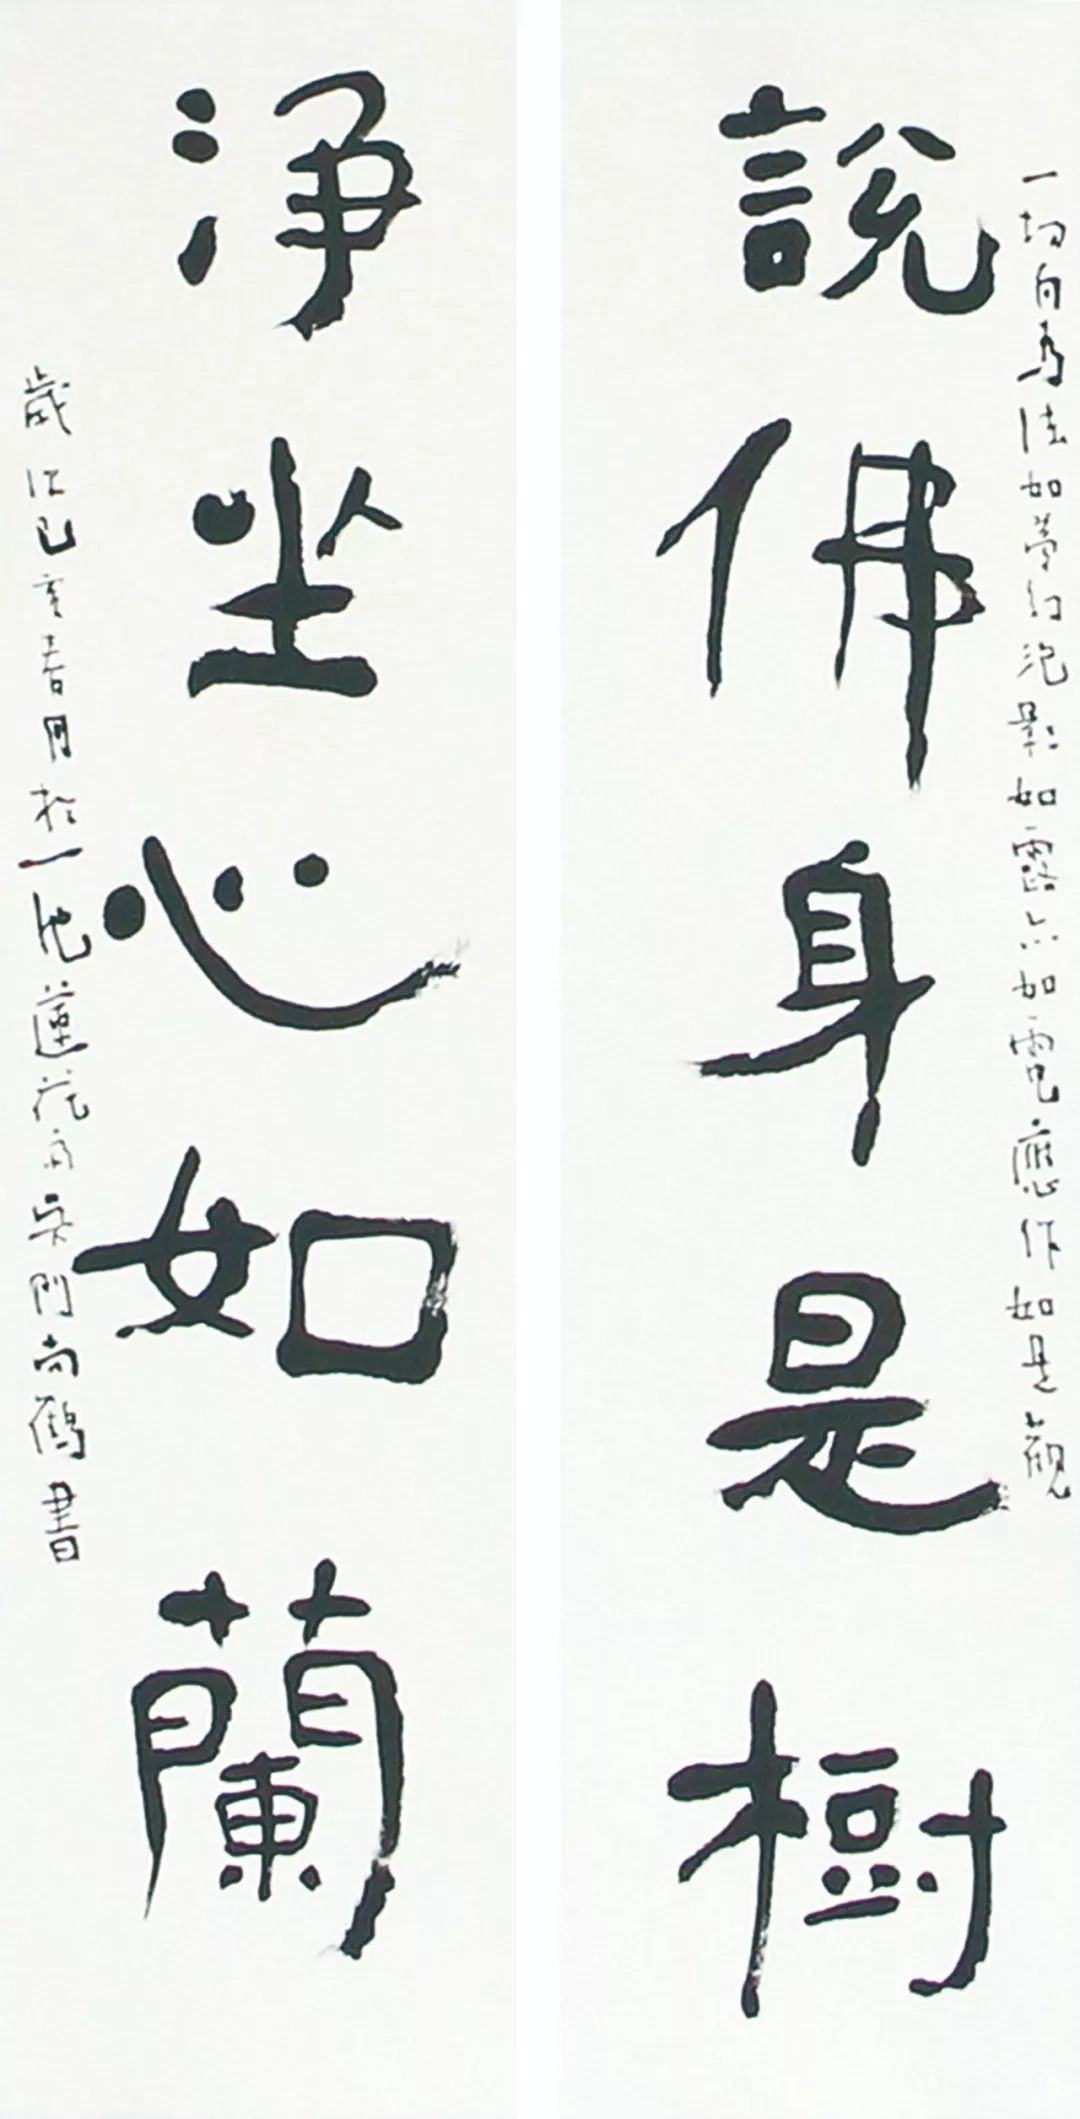 一切有為法如夢幻泡影如露亦如電應作如是觀
說佛身是樹
淨坐心如蘭
歲次己亥春月於一池蓮花吳門尚鶴書